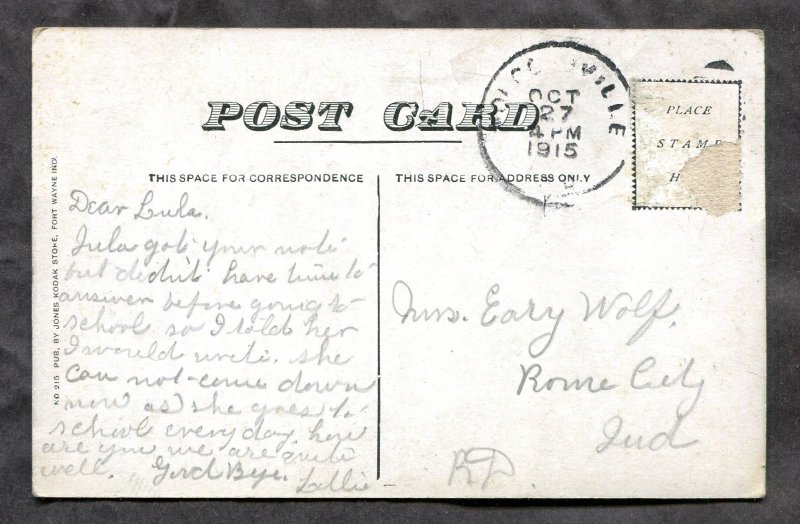 POST CARD
THIS SPACE FOR CORRESPONDENCE
THIS SPACE FOR ADDRESS ONLY
NO 215 PUB. BY JONES KODAK STORE, FORT WAYNE IND.
VILLE
OCT
27
4 PM
1915
PLACE
STAMP
H
Dear Lula.
Jula got your note
but didn't have time to
answer before going to
school so I told her
I would write. she
can not come down
now as she goes to
school every day. how
are you we are quite
well. Good Bye.
Lallie
Mrs. Eary Wolf.
Rome City
Ind
RD.